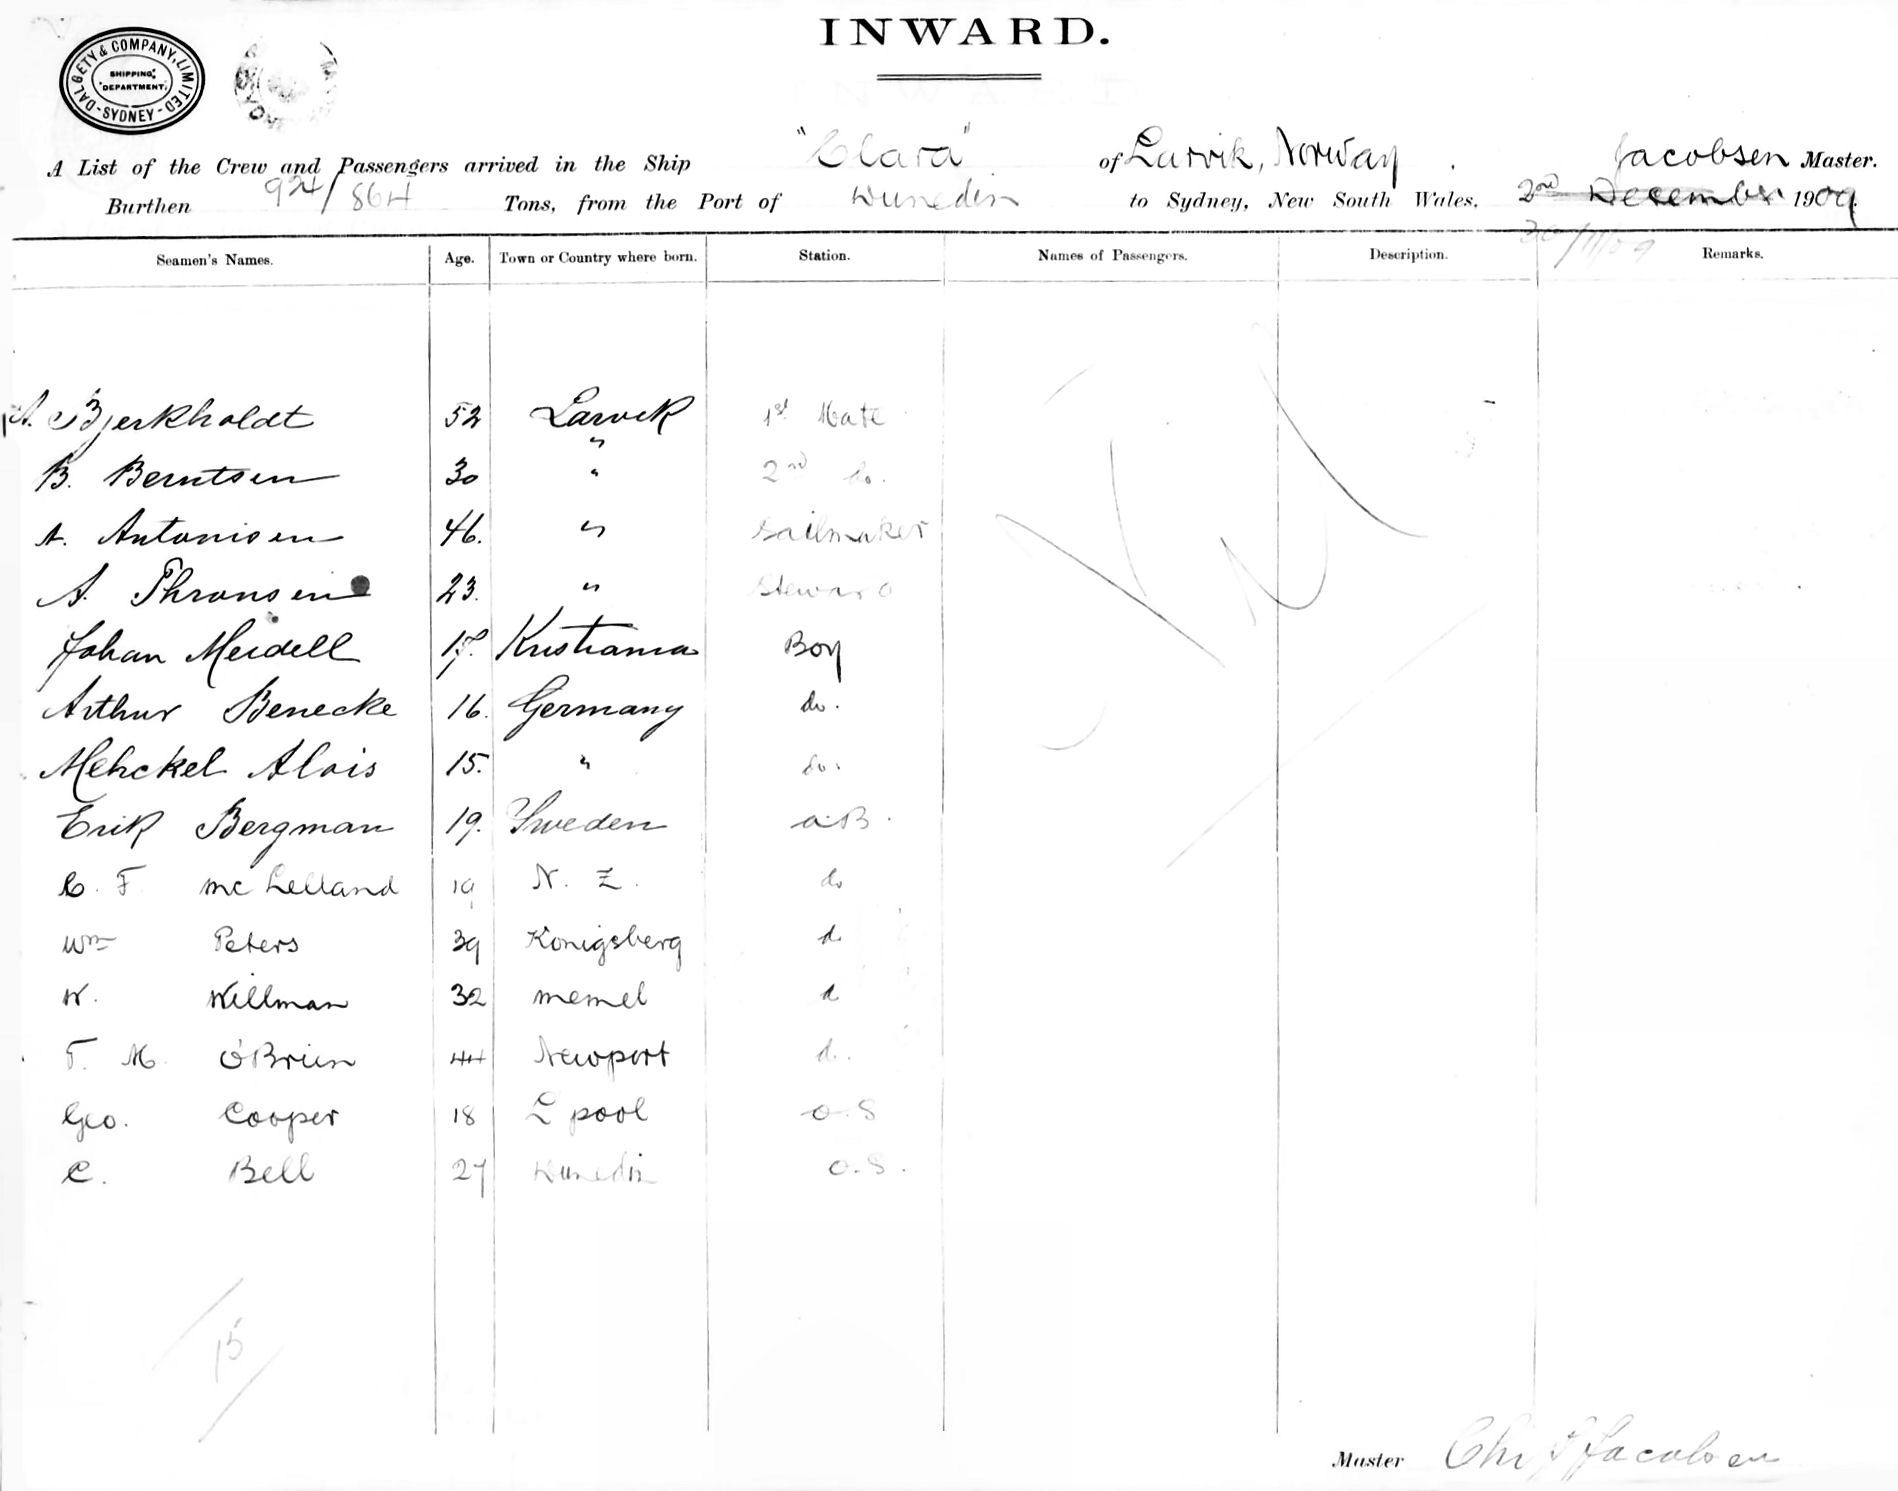 INWARD.
DALGETY & COMPANY, LIMITED
SHIPPING
DEPARTMENT.
SYDNEY
A List of the Crew and Passengers arrived in the Ship "Clara" of Larvik, Norway. Jacobsen Master.
Burthen 924/864 Tons, from the Port of Dunedin to Sydney, New South Wales, 2nd December 1909.
30/11/09
Seamen's Names. Age. Town or Country where born. Station. Names of Passengers. Description. Remarks.
A. Bjerkholdt 52 Larvik 1st Mate
B. Berntsen 30 " 2nd do.
A. Antonisen 46. " Sailmaker
A. Thronsen 23. " Steward
Johan Meidell 17. Kristiania Boy
Arthur Benecke 16. Germany do.
Mehckel Alois 15. " do.
Erik Bergman 19. Sweden a.B.
C. F. McLelland 19 N. Z. do
Wm Peters 39 Konigsberg d
W. Willman 32 memel d
T. M. O'Brien 44 Newport d.
Geo. Cooper 18 L pool o.S
C. Bell 27 Dunedin o.S.
Nil
15
Master Chr Jacobsen